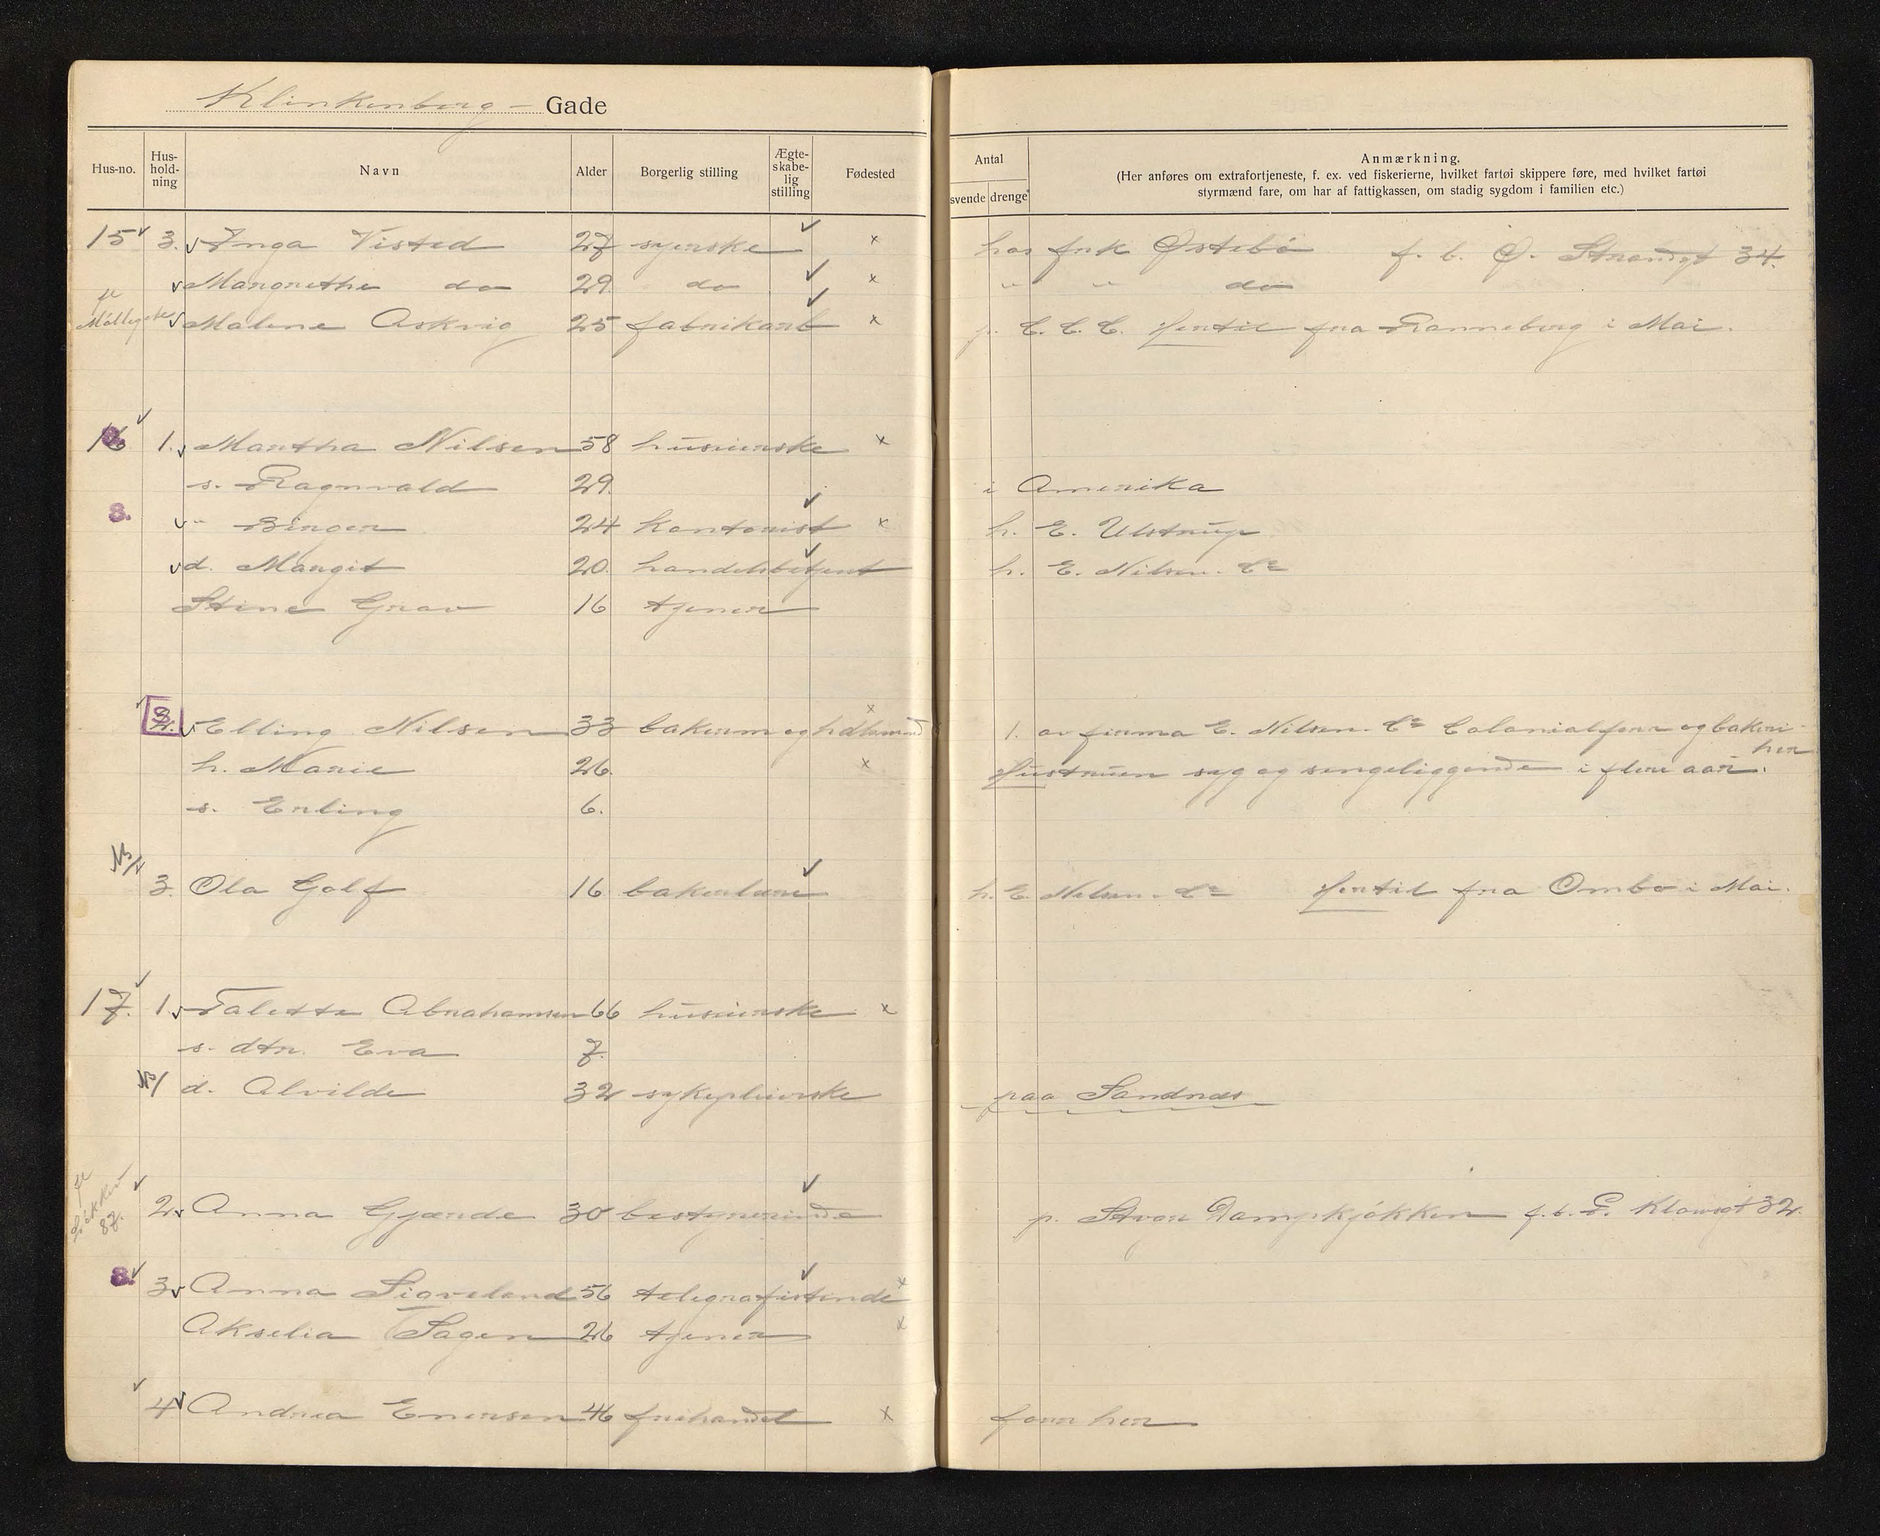 Klinkenberg - Gade
Hus-no. Hus-hold-ning Navn Alder Borgerlig stilling Ægte-skabe-lig stilling Fødested
Antal
svende drenge
Anmærkning.
(Her anføres om extrafortjeneste, f. ex. ved fiskerierne, hvilket fartøi skippere føre, med hvilket fartøi
styrmænd fare, om har af fattigkassen, om stadig sygdom i familien etc.)
15 3. Inga Visted 27 syerske x hos frk Østebö f. b. Ø. Strandgt 34.
Margrethe do 29 do x " " do
fl Möllegate Malene Askvig 25 fabrikarb x p. C. C. C. Hertil fra Ranneberg i Mai.
16 1. Martha Nilsen 58 husierske x
s. Ragnvald 29. i Amerika
8. " Birger 24 kontorist x h. E. Ulstrup
d. Margit 20. handelsbetjent h. E. Nilsen. Co
Stine Grav 16 tjener
Elling Nilsen 33 bakerm og hdlsmand x 1. av firma E. Nilsen. Co Colonialforr og bakeri her
h. Marie 26. x Hustruen syg og sengeliggende i flere aar.
s. Erling 6.
NB 3. Ola Golf 16 bakerlære h. E. Nilsen. Co Hertil fra Ombo i Mai.
17. 1. Talette Abrahamsen 66 husierske x
s. dtr. Eva 7.
NB d. Alvilde 32 sykepleierske paa Sandnæs
fl Lökkev 87. 2. Anna Gjærde 30 bestyrerinde p. Stvgr Dampkjökken f. b. P. Klowsgt 32.
8. 3 Anna Sigveland 56 telegrafistinde x
Akselia Sagen 26 tjener x
4 Andrea Enersen 46 frihandel x forr her